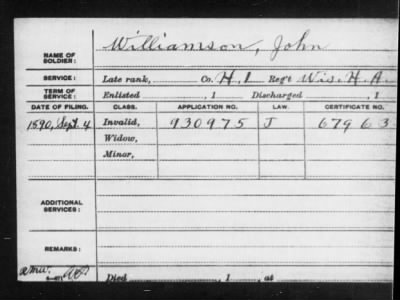 NAME OF SOLDIER: Williamson, John
SERVICE: Late rank, Co. H, 1 Reg't Wis. H. A.
TERM OF SERVICE: Enlisted , 1 Discharged , 1
DATE OF FILING. CLASS. APPLICATION NO. LAW. CERTIFICATE NO.
1890, Sept. 4 Invalid, 930975 J 67963
Widow,
Minor,
ADDITIONAL SERVICES:
REMARKS:
Died , 1 , at